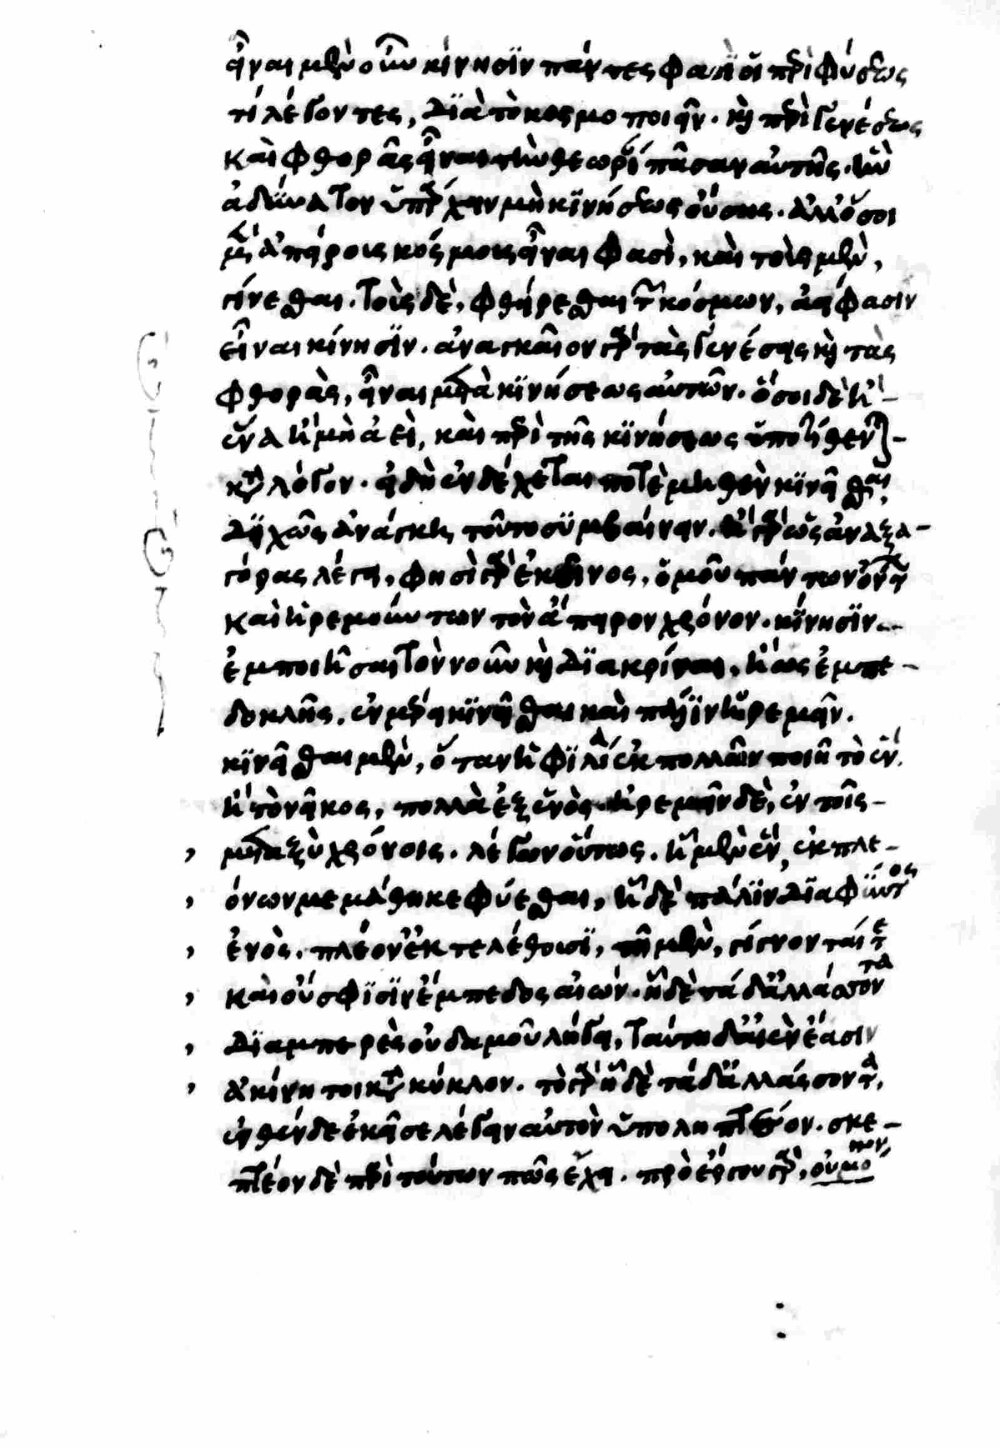 εἶναι μὲν οὖν κίνησιν πάντες φασὶν οἱ περὶ φύσεώς
τί λέγοντες, διὰ τὸ κοσμοποιεῖν. καὶ περὶ γενέσεως
καὶ φθορᾶς εἶναι τὴν θεωρίαν πᾶσαν αὐτῆς. ἣν
ἀδύνατον ὑπάρχειν μὴ κινήσεως οὔσης. ἀλλ' ὅσοι
μὲν ἀπείρους κόσμους εἶναι φασὶ, καὶ τοὺς μὲν,
γίνεσθαι. τοὺς δὲ, φθείρεσθαι τῶν κόσμων, ἀεί φασιν
εἶναι κίνησιν. ἀναγκαῖον γὰρ τὰς γενέσεις καὶ τὰς
φθορὰς, εἶναι μετὰ κινήσεως αὐτῶν. ὅσοι δὲ ἢ
ἕνα ἢ μὴ ἀεὶ, καὶ περὶ τῆς κινήσεως ὑποτίθεν}-
κατὰ λόγον. εἰ δὴ ἐνδέχεταί ποτε μηθὲν κινεῖσθαι,
διχῶς ἀνάγκη τοῦτο συμβαίνειν. ἢ γὰρ ὡς ἀναξα-
γόρας λέγει, φησὶ γὰρ ἐκεῖνος, ὁμοῦ πάντων ὄντων
καὶ ἠρεμούντων τὸν ἄπειρον χρόνον. κίνησιν
ἐμποιῆσαι τὸν νοῦν καὶ διακρῖναι, ἢ ὡς ἐμπε-
δοκλῆς. ἐν μέρει κινεῖσθαι καὶ πάλιν ἠρεμεῖν.
κινεῖσθαι μὲν, ὅταν ἡ φιλία ἐκ πολλῶν ποιῇ τὸ ἕν.
ἢ τὸ νεῖκος, πολλὰ ἐξ ἑνὸς. ἠρεμεῖν δὲ, ἐν τοῖς-
μεταξὺ χρόνοις. λέγων οὕτως. ἢ μὲν ἓν, ἐκ πλε-
όνων μεμάθηκε φύεσθαι, ἢ δὲ πάλιν διαφύντος
ἑνὸς. πλέον' ἐκτελέθουσι, τῇ μὲν, γίγνονταί τε
καὶ οὔ σφισιν ἔμπεδος αἰών. ᾗ δὲ τά δ' ἀλλάσσοντα
διαμπερὲς οὐδαμοῦ λήγει, ταύτῃ δ' αἰὲν ἔασιν
ἀκίνητοι κατὰ κύκλον. τὸ γὰρ ᾗ δὲ τά δ' ἀλλάσσοντα,
ἐνθένδε ἐκεῖσε λέγειν αὐτὸν ὑποληπτέον. σκε-
πτέον δὲ περὶ τούτων πῶς ἔχει. πρὸ ἔργου γὰρ, οὐ μόνον